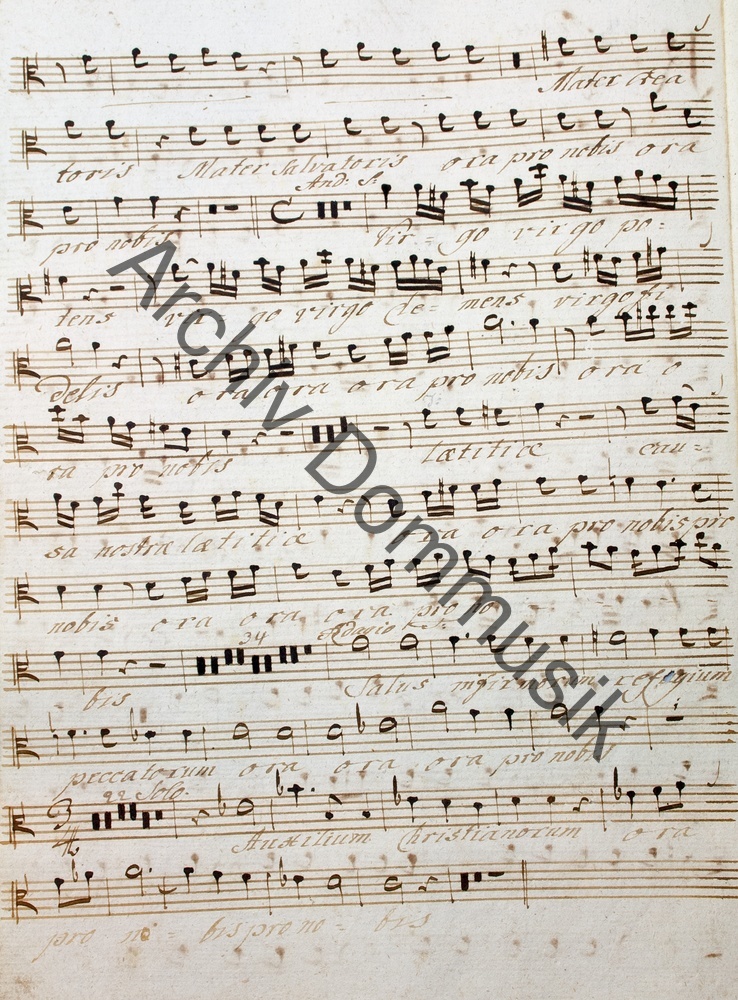 Mater Crea
toris Mater Salvatoris ora pro nobis ora
And: S:
pro nobis Vir- go virgo po-
tens vir go virgo cle- mens virgo fi
delis ora ora ora pro nobis ora o
ra pro nobis lætitiæ cau-
sa nostræ lætitiæ ora ora pro nobis pro
nobis ora ora ora pro no
34 Adagio
bis Salus infirmorum refugium
peccatorum ora ora ora pro nobis
3/4 22 Solo.
Auxilium Christianorum ora
pro no- bis pro no- bis
Archiv Dommusik